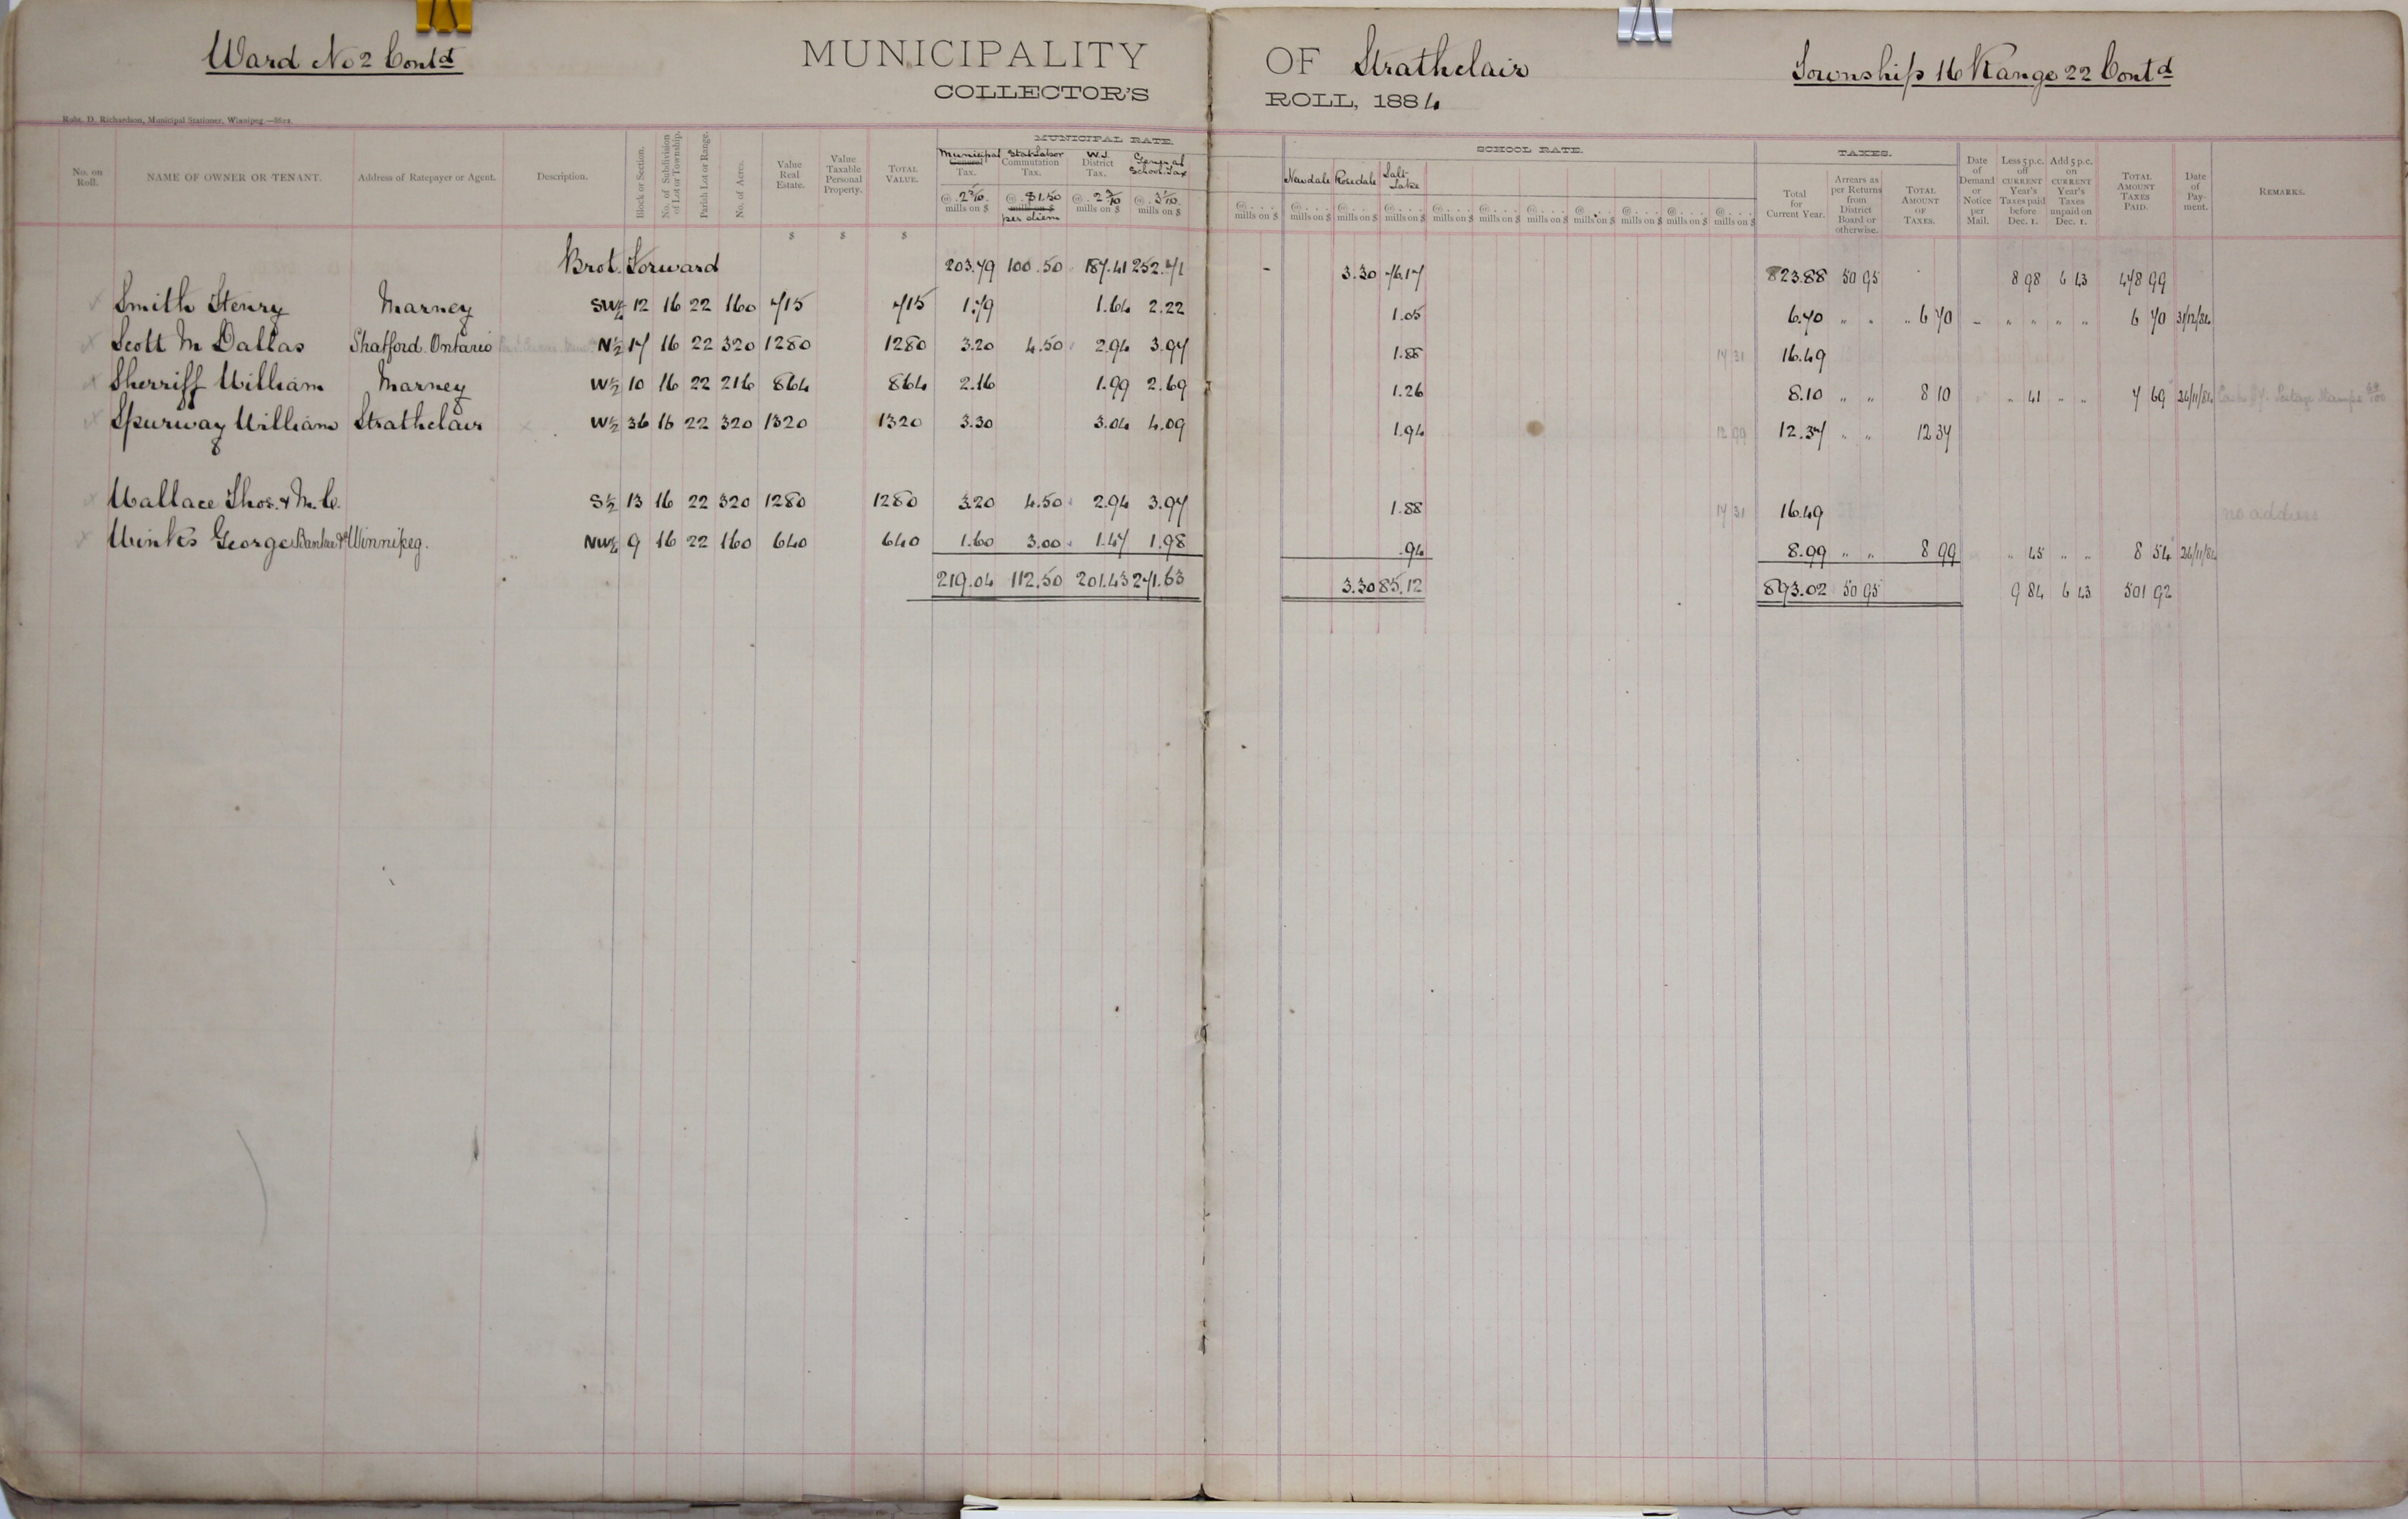 Ward No 2 Contd MUNICIPALITY OF Strathclair Township 16 Range 22 Contd
COLLECTOR'S ROLL, 1884
Robt. D. Richardson, Municipal Stationer, Winnipeg.
MUNICIPAL RATE. SCHOOL RATE. TAXES.
No. on Roll. NAME OF OWNER OR TENANT. Address of Ratepayer or Agent. Description. Block or Section. No. of Subdivision of Lot or Township. Parish Lot or Range. No. of Acres. Value Real Estate. Value Taxable Personal Property. TOTAL VALUE. Municipal Tax. Stat Labor Commutation Tax. W.J. District Tax. General School Tax Newdale Rosedale Salt Lake Total for Current Year. Arrears as per Returns from District Board or otherwise. TOTAL AMOUNT OF TAXES. Date of Demand or Notice per Mail. Less 5 p.c. off CURRENT Year's Taxes paid before Dec. 1. Add 5 p.c. on CURRENT Year's Taxes unpaid on Dec. 1. TOTAL AMOUNT TAXES PAID. Date of Payment. REMARKS.
@ 2 5/10 mills on $ @ $1.50 mills on $ per diem @ 2 3/10 mills on $ @ 3 1/10 mills on $ @ . . . mills on $ @ . . . mills on $ @ . . . mills on $ @ . . . mills on $ @ . . . mills on $ @ . . . mills on $ @ . . . mills on $ @ . . . mills on $ @ . . . mills on $ @ . . . mills on $ @ . . . mills on $
$ $ $
Brot. Forward 203.79 100.50 187.41 252.71 - 3.30 76.17 823.88 50 95 8 98 6 43 478 99
Smith Henry Marney SW¼ 12 16 22 160 715 715 1.79 1.64 2.22 1.05 6.70 " " " 6 70 - " " " " 6 70 31/12/84
Scott M Dallas Shatford Ontario N½ 17 16 22 320 1280 1280 3.20 4.50 2.94 3.97 1.88 17 31 16.49
Sherriff William Marney W½ 10 16 22 216 864 864 2.16 1.99 2.69 1.26 8.10 " " 8 10 " 41 " " 7 69 26/11/84 Postage Stamps
Spurway William Strathclair W½ 36 16 22 320 1320 1320 3.30 3.04 4.09 1.94 12 99 12.37 " " 12 37
Wallace Thos. & M. C. S½ 13 16 22 320 1280 1280 3.20 4.50 2.94 3.97 1.88 17 31 16.49 no address
Winks George Winnipeg. NW¼ 9 16 22 160 640 640 1.60 3.00 1.47 1.98 .94 8.99 " " 8 99 " 45 " " 8 54 26/11/84
219.04 112.50 201.43 271.63 3.30 85.12 893.02 50 95 9 84 6 43 501 92